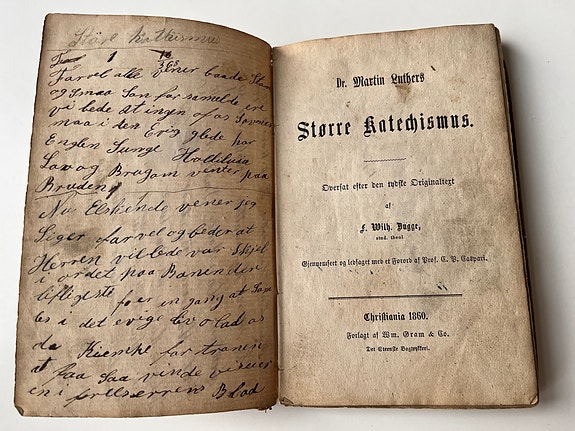 Store Kattismus
1
368
Farvel alle vener baade Store
og Smaa Som forsamlede ere
vi bede at ingen af os Savnes
maa i den Evig glede hvor
Englen Sunge Halleluia
Lov og Brugom venter paa
Bruden
Nu Elskende vener jeg
Siger farvel og beder at
Herren vil lede vor
i ordet paa Banen den
liftigeste for en gang at Sam
les i det evige liv o lad os
da Kiempe for tronen
at faa Saa vinde vi seier
en i frelserrens Blod
Dr. Martin Luthers
Større Katechismus.
Oversat efter den tydske Originaltext
af
F. Wilh. Bugge,
stud. theol.
Gjennemseet og ledsaget med et Forord af Prof. C. P. Caspari.
Christiania 1860.
Forlagt af Wm. Gram & Co.
Det Steenske Bogtrykkeri.